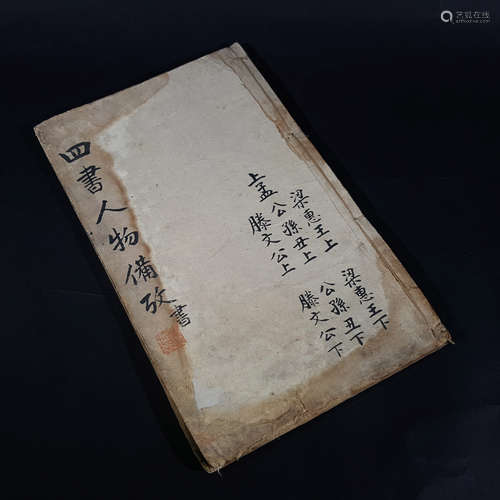 四書人物備攷
書
上孟
梁惠王上
公孫丑上
滕文公上
梁惠王下
公孫丑下
滕文公下